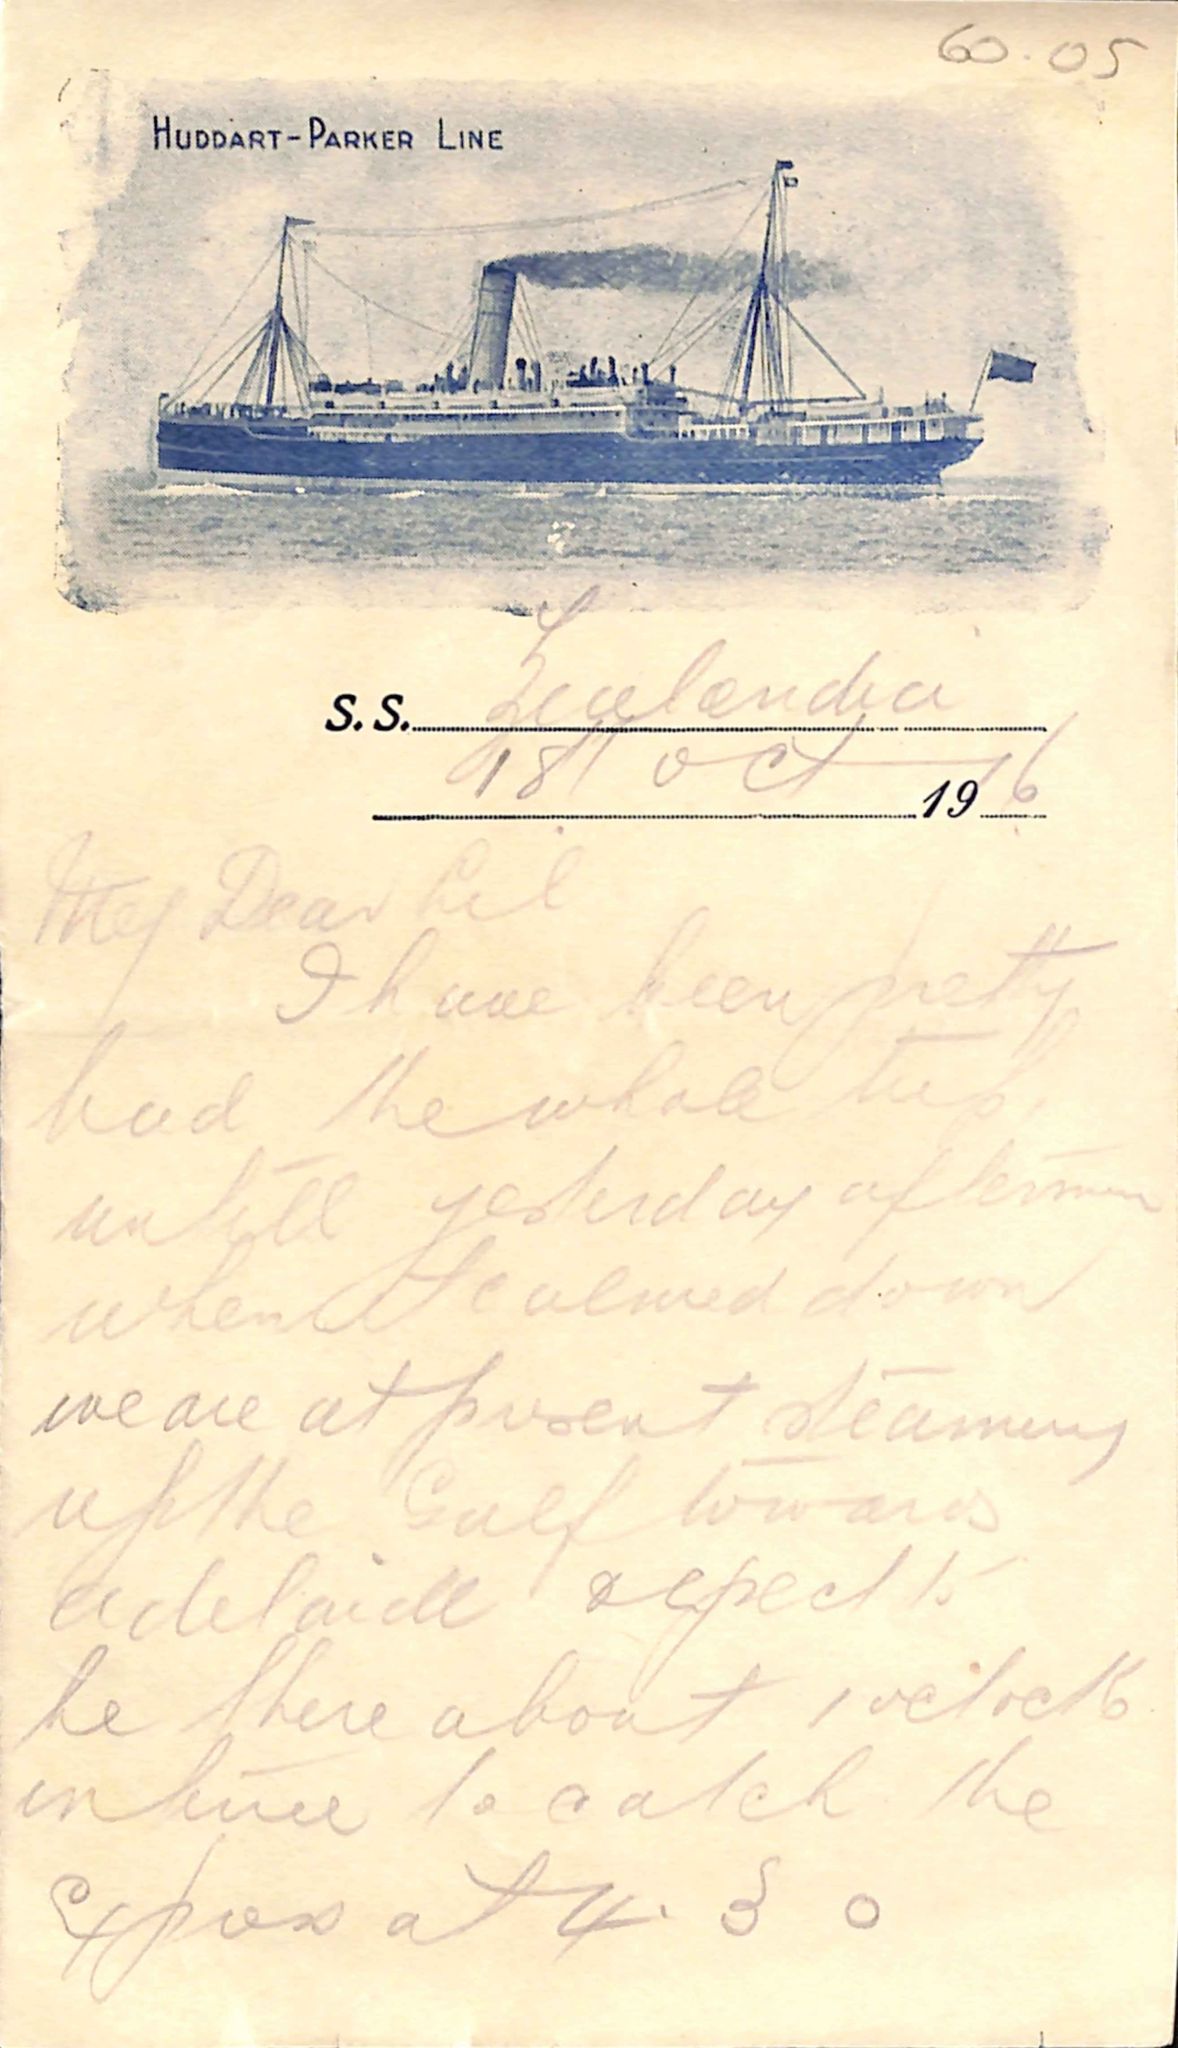 60.05
HUDDART-PARKER LINE
S.S. Zealandia
18 Oct 1916
My Dear Lil
I have been pretty
bad the whole trip,
untill yesterday afternoon
when it calmed down
we are at present steaming
up the Gulf towards
adelaide expect to
be there about 1 oclock
in time to catch the
Express at 4.30